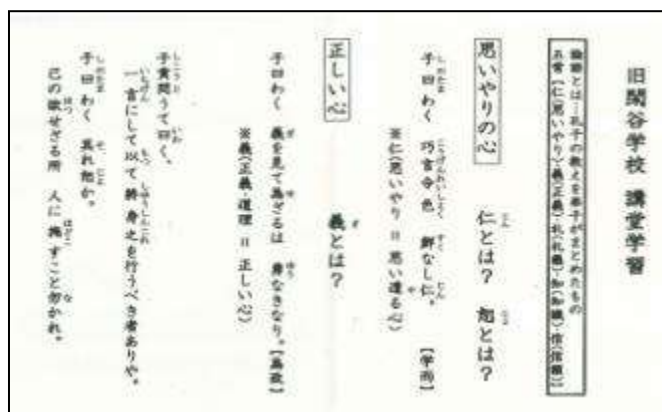 旧閑谷学校 講堂学習
論語とは…孔子の教えを弟子がまとめたもの
五常【仁(思いやり)・義(正義)・礼(礼儀)・知(知識)・信(信頼)】
思いやりの心 仁とは? 恕とは?
子曰わく 巧言令色 鮮なし仁。 【学而】
※仁(思いやり = 思い遣る心)
正しい心 義とは?
子曰わく 義を見て為ざるは 勇なきなり。【為政】
※義(正義・道理 = 正しい心)
子貢問うて曰く。
一言にして以て終身之を行うべき者ありや。
子曰わく 其れ恕か。
己の欲せざる所 人に施すこと勿かれ。